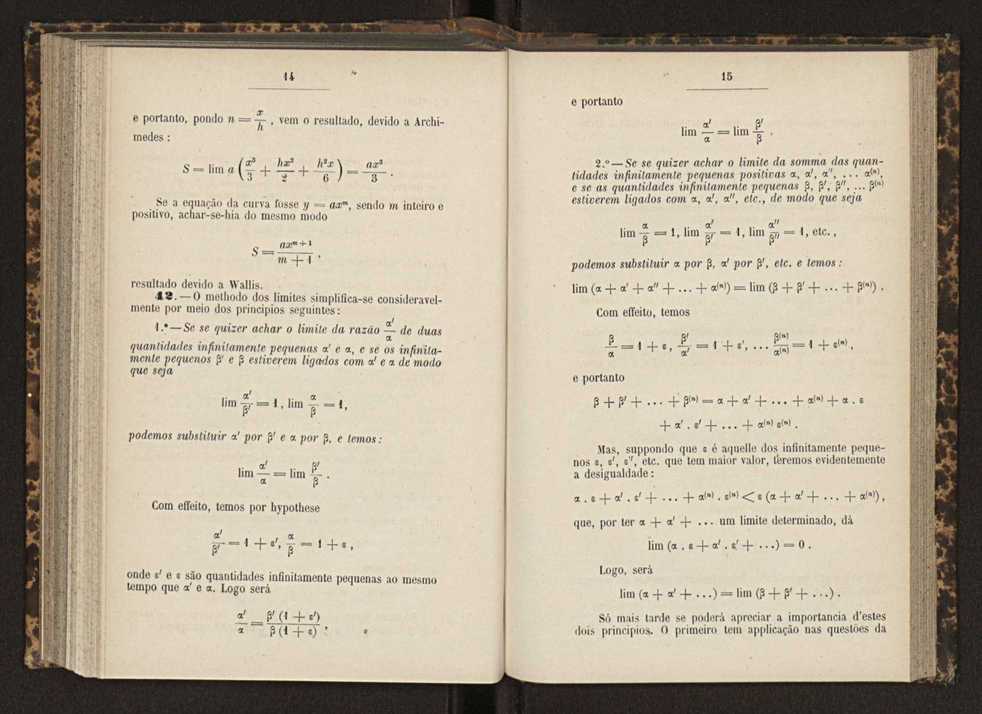 14
e portanto, pondo n = x/h , vem o resultado, devido a Archi-
medes :
S = lim a (x³/3 + hx²/2 + h²x/6) = ax³/3 .
Se a equação da curva fosse y = axᵐ, sendo m inteiro e
positivo, achar-se-hia do mesmo modo
S = axᵐ⁺¹/(m + 1) ,
resultado devido a Wallis.
12. — O methodo dos limites simplifica-se consideravel-
mente por meio dos principios seguintes :
1.º — Se se quizer achar o limite da razão α′/α de duas
quantidades infinitamente pequenas α′ e α, e se os infinita-
mente pequenos β′ e β estiverem ligados com α′ e α de modo
que seja
lim α′/β′ = 1 , lim α/β = 1,
podemos substituir α′ por β′ e α por β, e temos :
lim α′/α = lim β′/β .
Com effeito, temos por hypothese
α′/β′ = 1 + ε′, α/β = 1 + ε ,
onde ε′ e ε são quantidades infinitamente pequenas ao mesmo
tempo que α′ e α. Logo será
α′/α = β′ (1 + ε′)/β (1 + ε) ,
15
e portanto
lim α′/α = lim β′/β .
2.º — Se se quizer achar o limite da somma das quan-
tidades infinitamente pequenas positivas α, α′, α″, ... α⁽ⁿ⁾,
e se as quantidades infinitamente pequenas β, β′, β″, ... β⁽ⁿ⁾
estiverem ligados com α, α′, α″, etc., de modo que seja
lim α/β = 1, lim α′/β′ = 1, lim α″/β″ = 1, etc. ,
podemos substituir α por β, α′ por β′, etc. e temos :
lim (α + α′ + α″ + ... + α⁽ⁿ⁾) = lim (β + β′ + ... + β⁽ⁿ⁾) .
Com effeito, temos
β/α = 1 + ε, β′/α′ = 1 + ε′, ... β⁽ⁿ⁾/α⁽ⁿ⁾ = 1 + ε⁽ⁿ⁾ ,
e portanto
β + β′ + ... + β⁽ⁿ⁾ = α + α′ + ... + α⁽ⁿ⁾ + α . ε
+ α′ . ε′ + ... + α⁽ⁿ⁾ ε⁽ⁿ⁾ .
Mas, suppondo que ε é aquelle dos infinitamente peque-
nos ε, ε′, ε″, etc. que tem maior valor, teremos evidentemente
a desigualdade :
α . ε + α′ . ε′ + ... + α⁽ⁿ⁾ . ε⁽ⁿ⁾ < ε (α + α′ + ... + α⁽ⁿ⁾) ,
que, por ter α + α′ + ... um limite determinado, dá
lim (α . ε + α′ . ε′ + ...) = 0 .
Logo, será
lim (α + α′ + ...) = lim (β + β′ + ...) .
Só mais tarde se poderá apreciar a importancia d'estes
dois principios. O primeiro tem applicação nas questões da